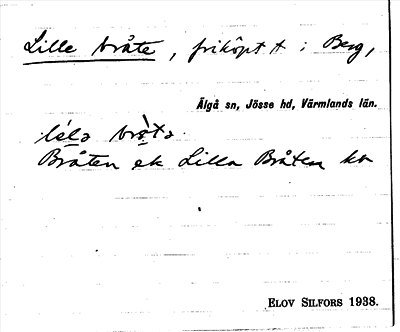 Lille bråte, friköpt t i Berg,
Älgå sn, Jösse hd, Värmlands län.
Bråten ek Lilla Bråten ka
ELOV SILFORS 1938.